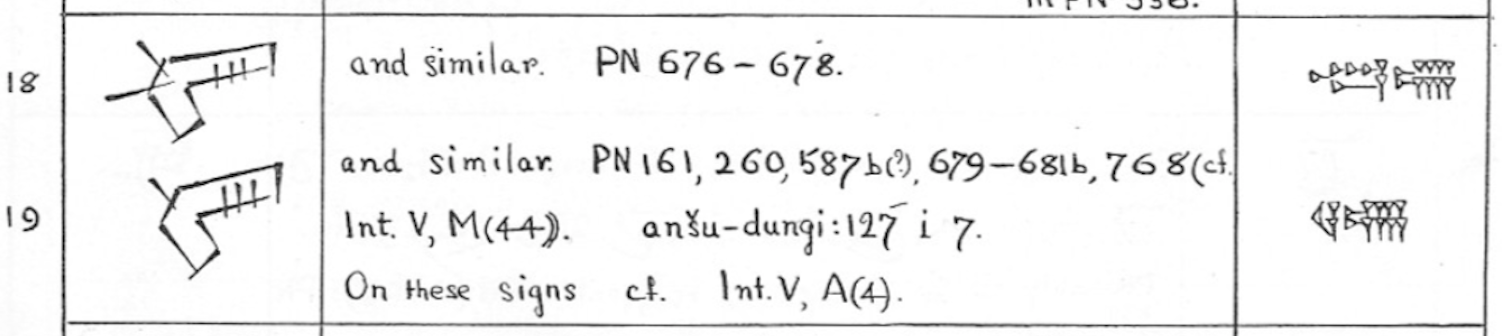 18 and similar. PN 676 – 678.
19 and similar. PN 161, 260, 587b(?), 679–681b, 768 (cf.
Int. V, M(44)). anšu-dungi: 127 i 7.
On these signs cf. Int. V, A(4).